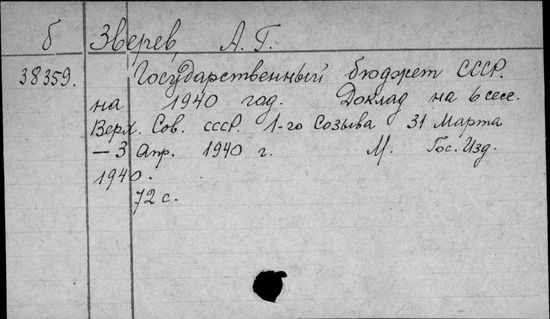 б Зверев, А. Г.
38359. Государственный бюджет СССР.
на 1940 год. Доклад на 6 сесс.
Верх. Сов. СССР. 1-го Созыва 31 Марта
— 3 Апр. 1940 г. М. Гос. Изд.
1940.
72 с.